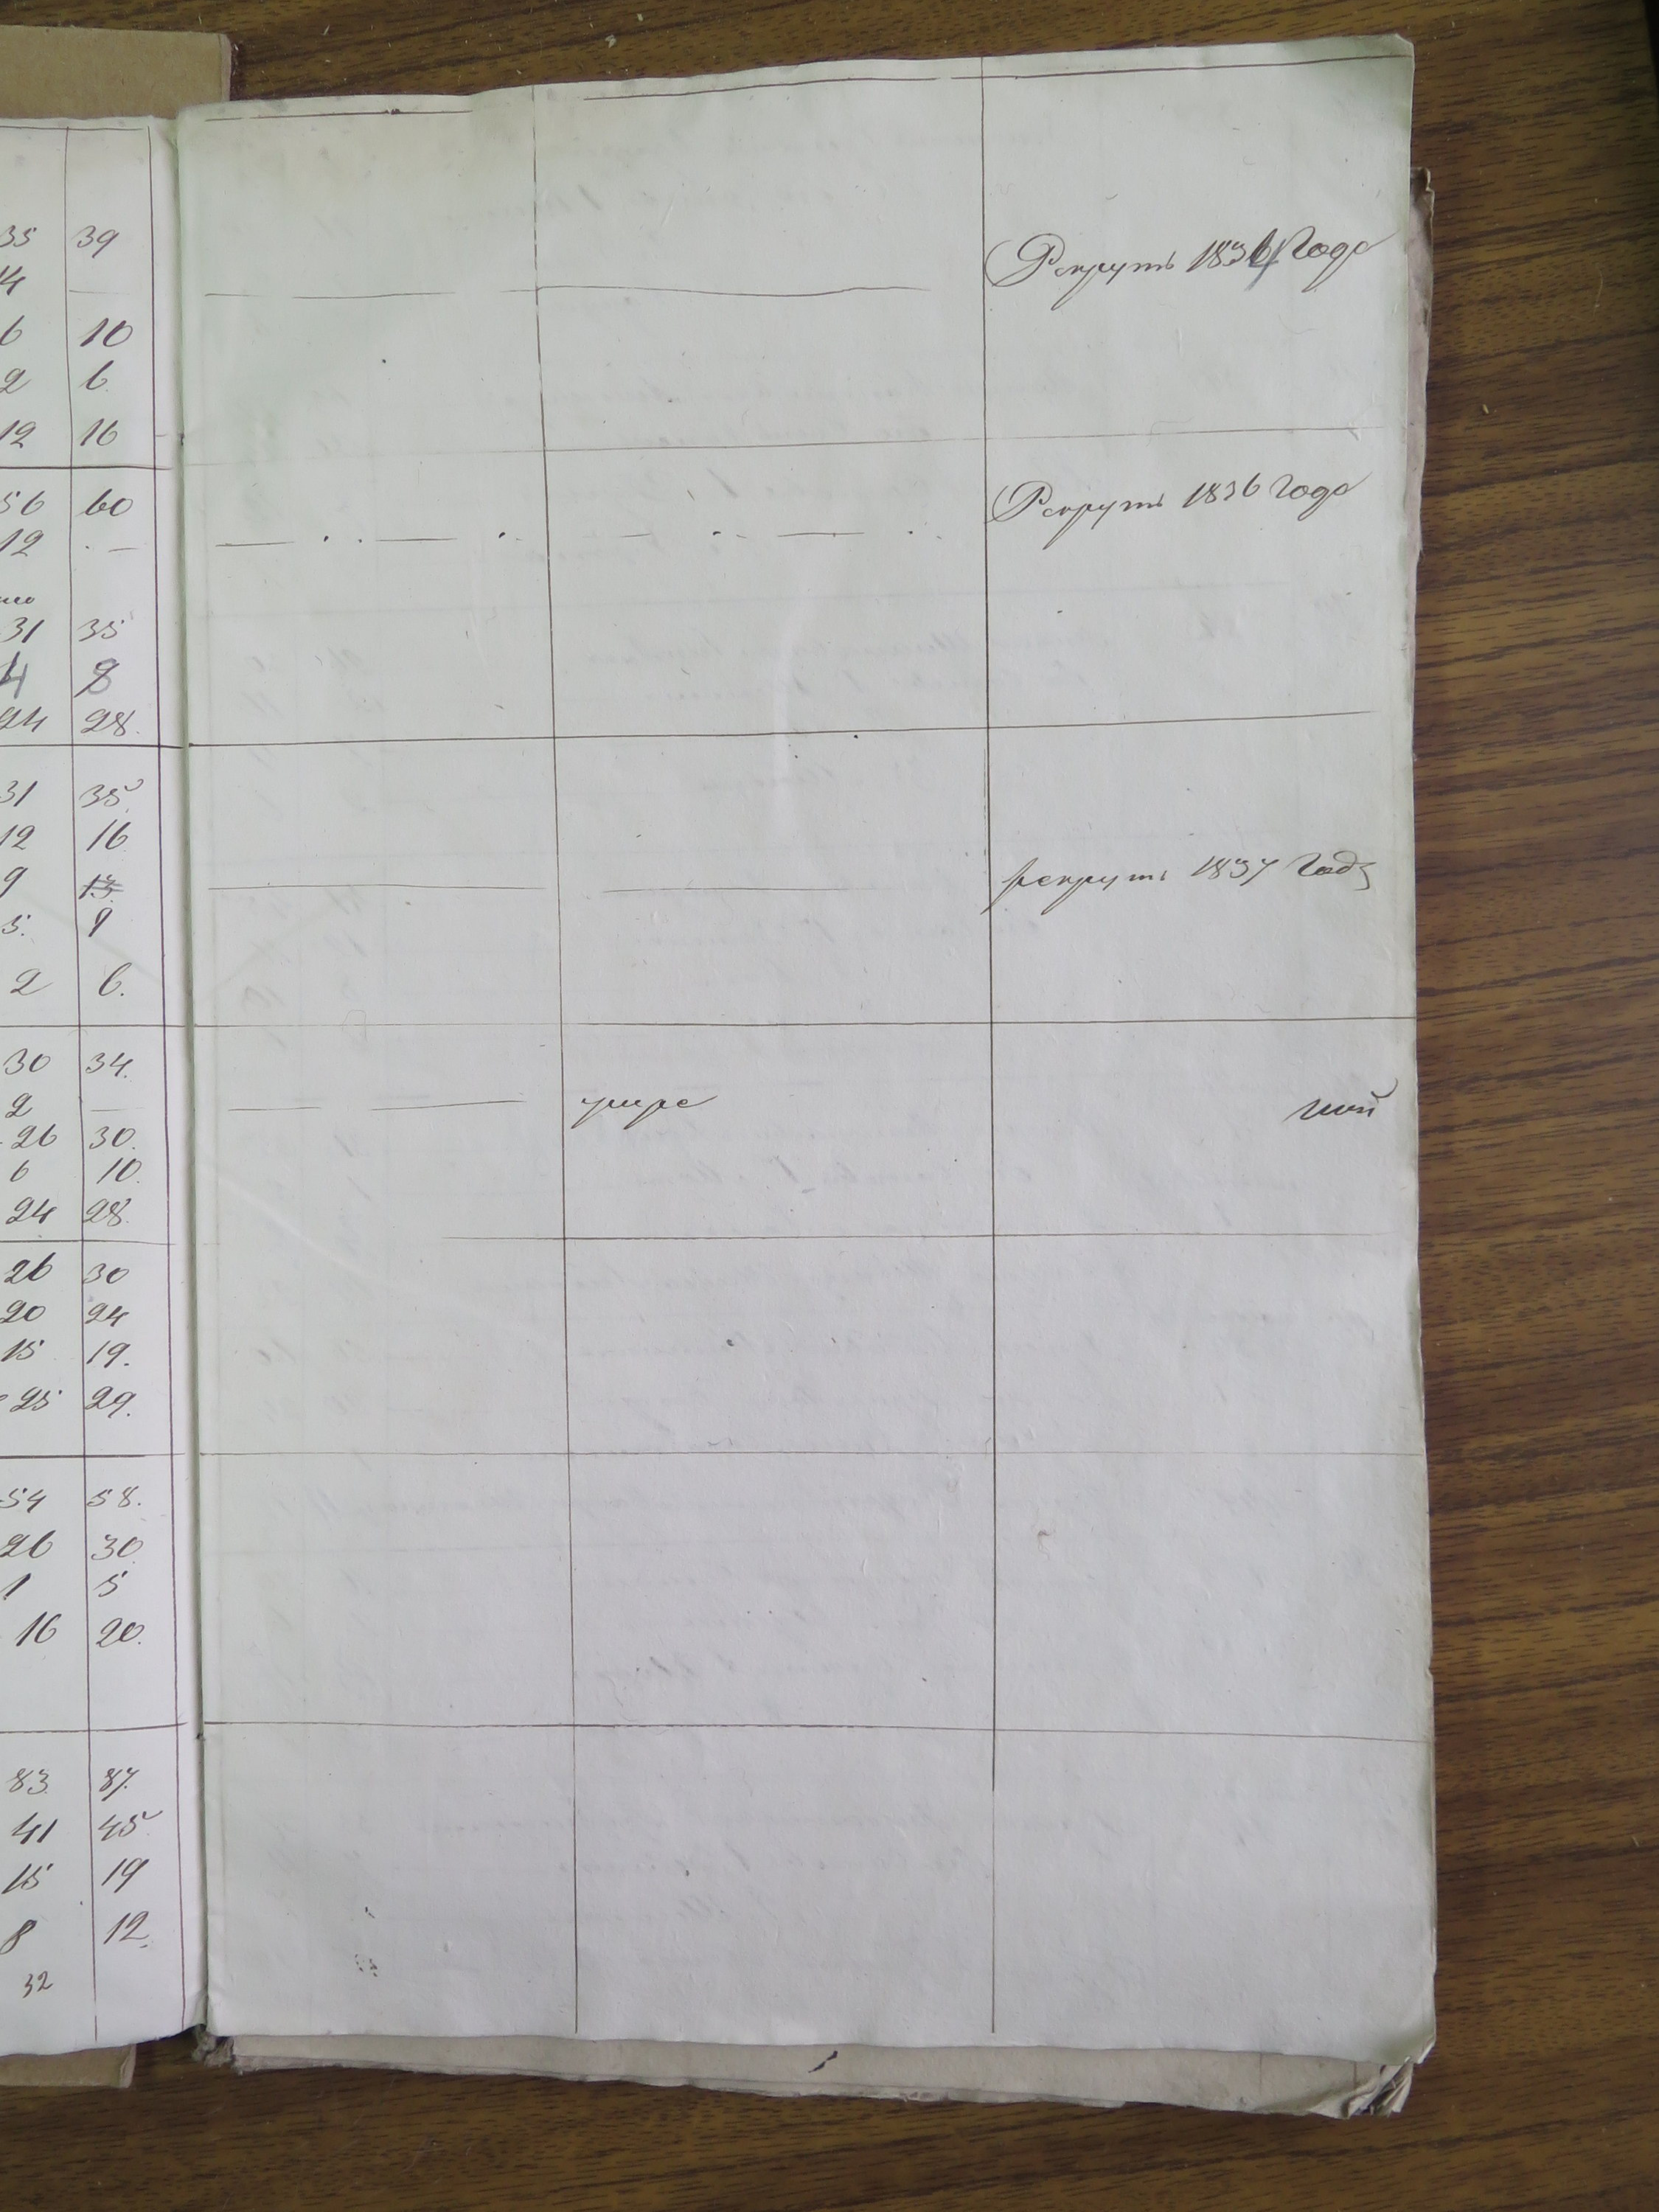 35 39 Рекрутъ 1834 Года
14 —
6 10
2 6.
12 16
56 60 Рекрутъ 1836 Года
12 . —
31 35
4 8
24 28.
31 35.
12 16
9 13. рекрутъ 1837 Года
5. 9
2 6.
30 34.
2 — умре
26 30.
6 10.
24 28.
26 30
20 24
15 19.
25 29.
54 58.
26 30
1 5
16 20.
83. 87.
41 45
15 19
8 12.
32